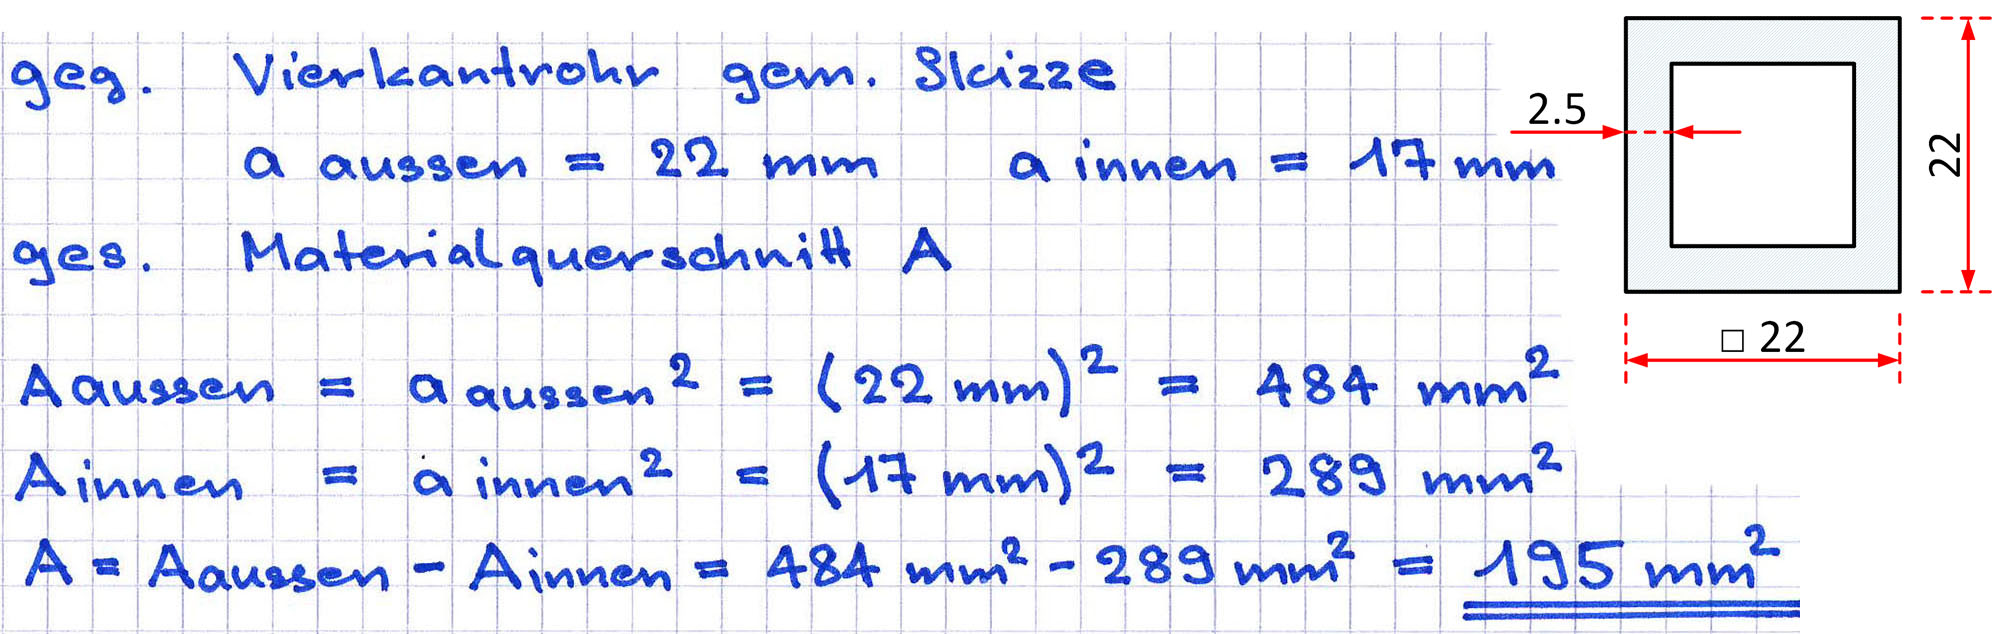 geg. Vierkantrohr gem. Skizze
a aussen = 22 mm a innen = 17 mm
ges. Materialquerschnitt A
A aussen = a aussen² = (22 mm)² = 484 mm²
A innen = a innen² = (17 mm)² = 289 mm²
A = A aussen - A innen = 484 mm² - 289 mm² = 195 mm²
2.5
22
□ 22